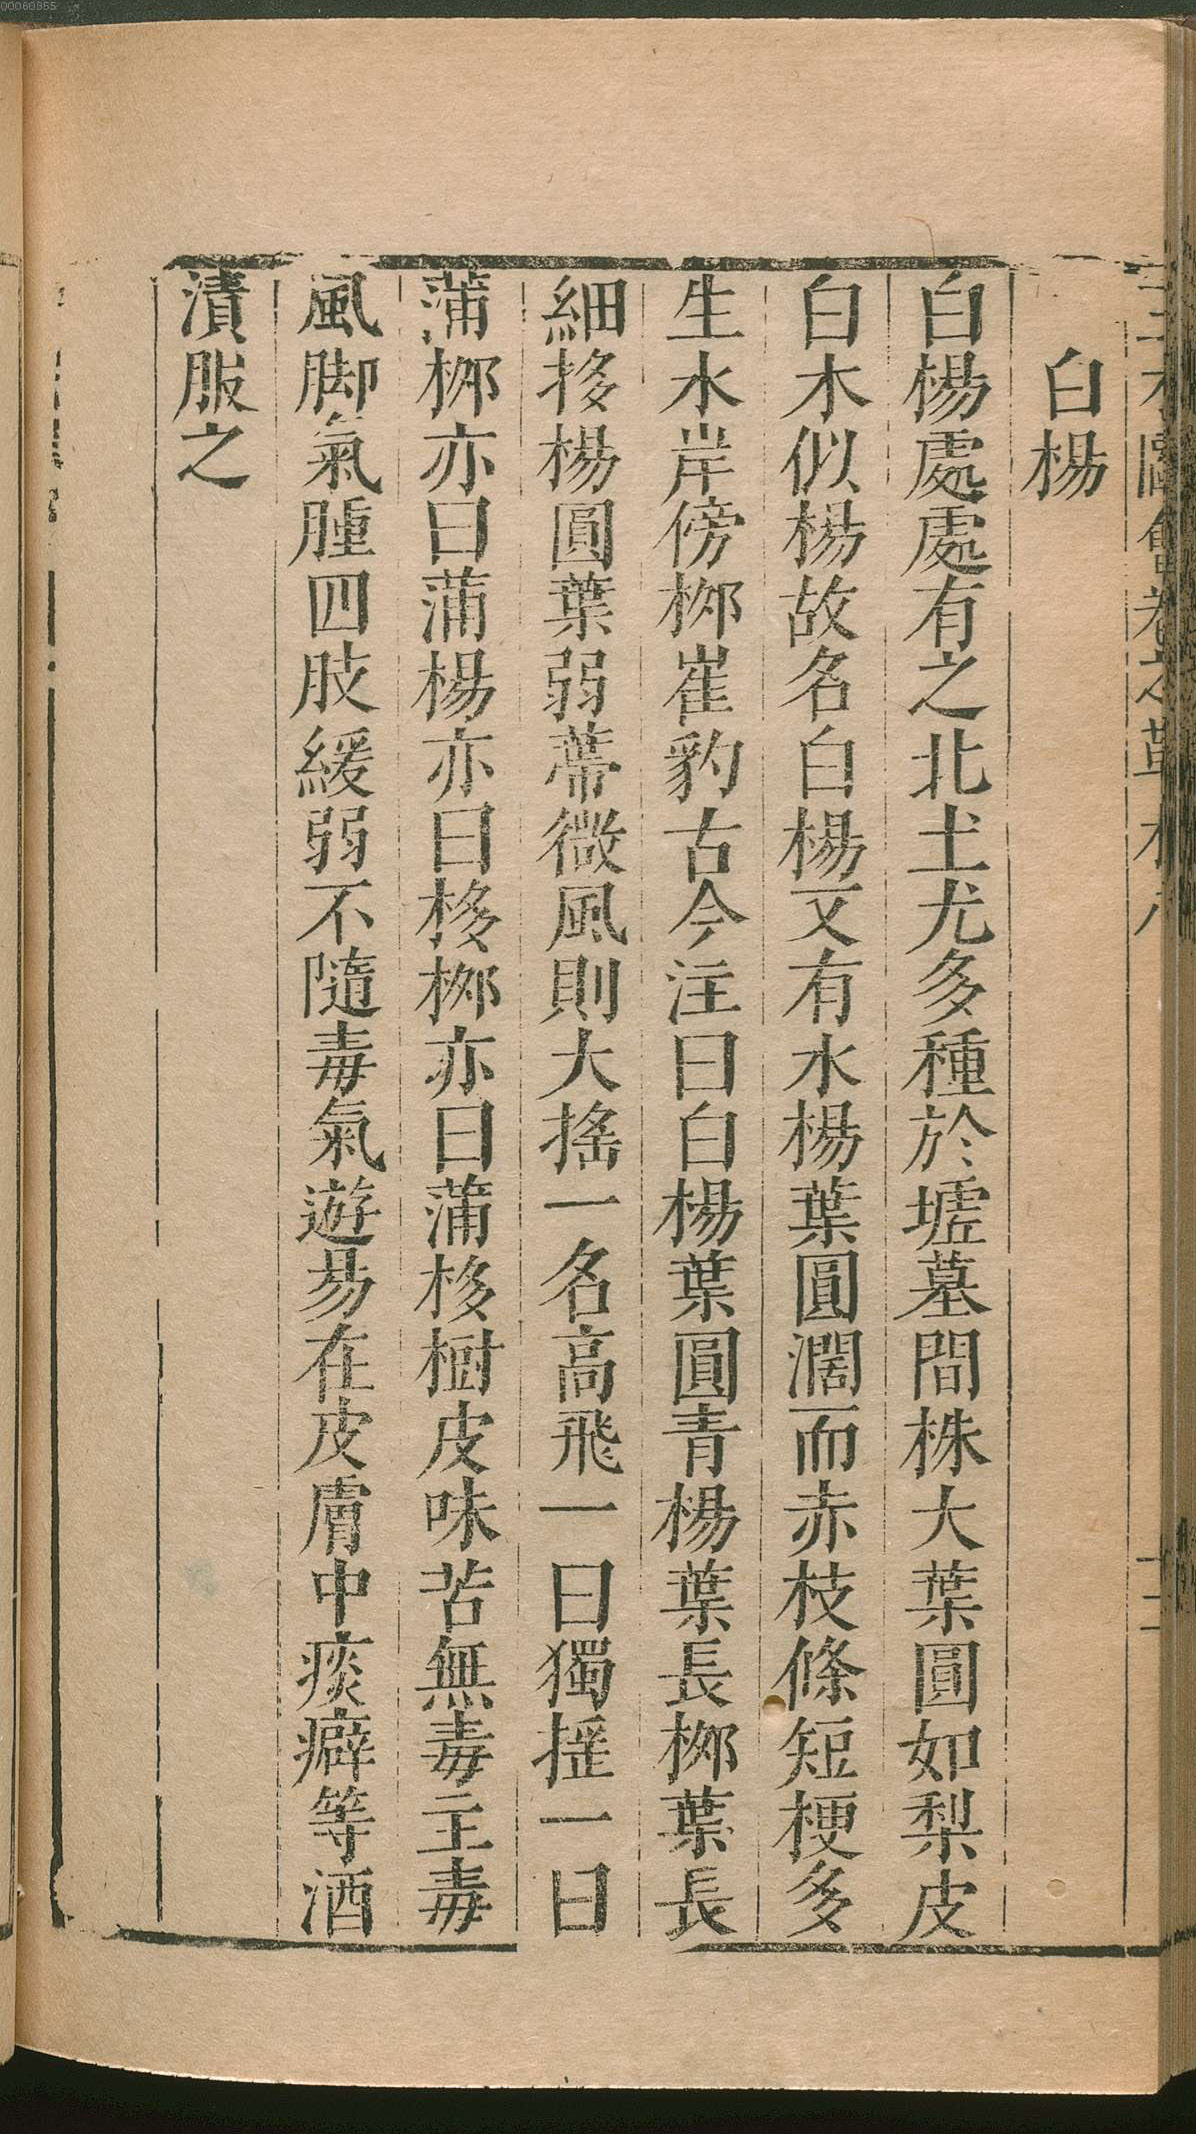 白楊
白楊處處有之北土尤多種於墟墓間株大葉圓如梨皮
白木似楊故名白楊又有水楊葉圓濶而赤枝條短梗多
生水岸傍栁崔豹古今注曰白楊葉圓青楊葉長栁葉長
細栘楊圓葉弱蔕微風則大搖一名高飛一曰獨揺一曰
蒲栁亦曰蒲楊亦曰栘栁亦曰蒲栘樹皮味苦無毒主毒
風脚氣腫四肢緩弱不隨毒氣遊易在皮膚中痰癖等酒
漬服之
00060355